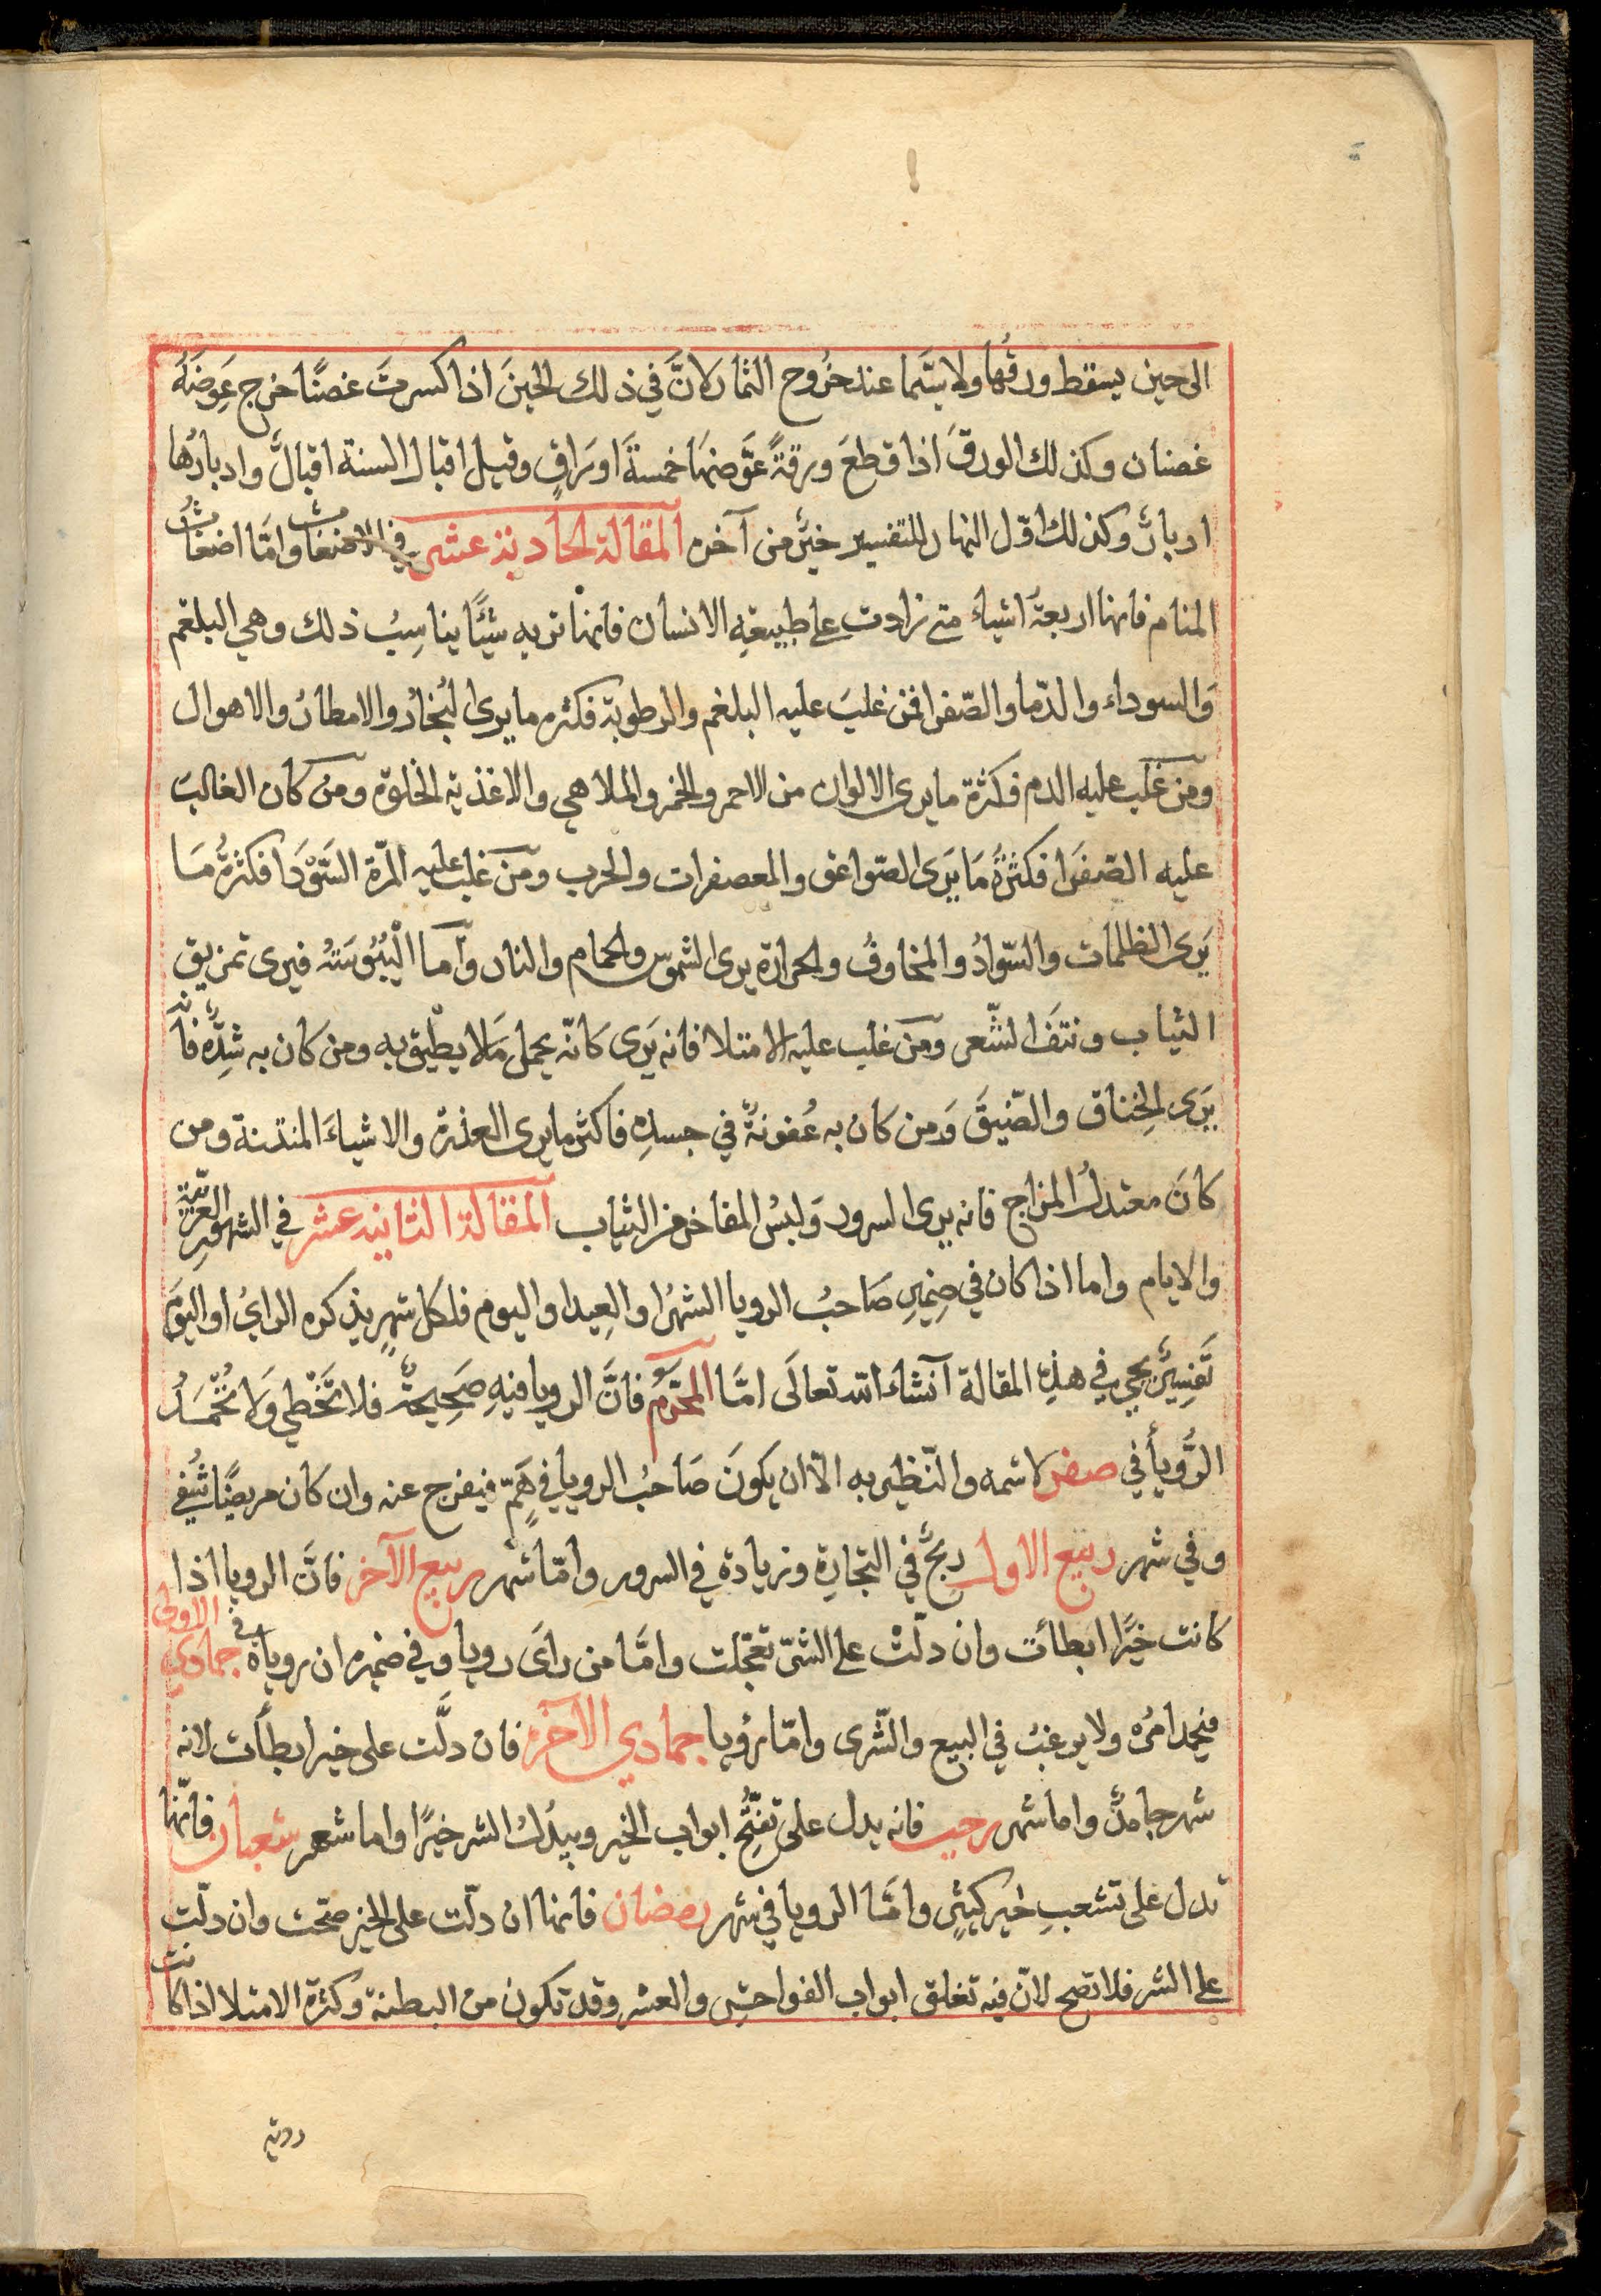 الى حين يسقط ورقُها ولا سيّما عند خروج الثمار لانَّ في ذلك الحينَ اذا كسرتَ غصنًا خرج عَوِضَهُ
غصنان وكذلك الورقَ اذا قطعَ ورقةً عَوَّضنهَا خمسةَ اورَاقٍ وقيل اقبال السنة اقبالٌ وادبارُها
ادبارٌ وكذلك اوّل النهار للتفسير خيرٌ من آخره المقالة الحادية عشر في الاضغاث وامّا اضغاثُ
المنام فانها اربعةُ اشياء متى زادت على طبيعةِ الانسان فانها تريه شيئًا يناسِبُ ذلك وهي البلغم
وَالسوداء والدّما والصّفرا فمن غلبَ عليه البلغم والرطوبة فكثره ما يرى البُخارُ والامطارُ والاهوال
ومن غلب عليه الدم فكثرة ما يرى الالوان من الاحمر والخمر والملاهي والاغذية الحلوة ومن كان الغالبَ
عليه الصّفرَا فكثرةُ مَا يَرَى الصّواعق والمعصفرات والحرب ومن غلب عليه المرّة السَّوْدَا فكثرةُ مَا
يَرَى الظلمات والسّوادُ والمخاوفُ والحرارة يرى الشموس والحمام والنار وأما الْيُبُوسَتُه فيرى تمزيق
الثياب ونتفَ الشّعر ومن غلب عليه الامتلا فانه يَرَى كانّه يحمل مَا لا يطيْق به ومن كان به شِدّةٌ فانه
يَرَى الخِناق والضّيقَ وَمن كان به عُفونةٌ في جسدِه فاكثر ما يرى العذرة والاشياءَ المنتنة ومن
كانَ معتدلُ المزاج فانه يرى السرور وَلبسُ المفاخر من الثياب المقالة الثانية عشر في الشهورِ العربيّة
والايام واما اذا كان في ضِميرِ صَاحبُ الرويا الشهرُ او العِيد او اليوم فلكل شهرٍ يذكره الرايُ او اليومَ
تَفسِيرٌ يجي في هذِه المقالة انشاء الله تعالَى امّا المحرّم فانَّ الرويا فيهِ صَحِيحةٌ فلا تَخْطي وَلا تُحْمَدُ
الرُّوْياْ في صفر لاسمه والتّطير به الّا ان يكونَ صَاحبُ الرويا في هَمٍّ فيفرج عنه وان كان مريضًا شُفي
وفي شهر ربيع الاول ربحٌ في التجارةِ وزيادة في السرور وامّا شهر ربيع الآخر فانَّ الرويا اذا
كانت خيرًا ابطأت وان دلّتْ على الشرّ تعجّلت وامَّا من رايَ رويا وفي ضميره ان روياهُ في جمادي الاولى
فيحمد امرُه ولا يرغبُ في البيع والشّرى وامّا رؤيا جمادي الآخره فان دلَّت على خير ابطأت لانه
شهر جامدٌ واما شهر رجب فانه يدل على تفتّحِ ابواب الخير ويبدُل الشر خيرًا واما شهر شعبان فانّها
تدل على تشعبِ خير كثيرٍ وامّا الرويا في شهر رمضان فانها ان دلّت على الخير صحّت وان دلّت
على الشر فلا تصح لانّ فيه تغلق ابواب الفواحش والعشر وقد تكون من البطنة وكثرة الامتلا اذا كانت